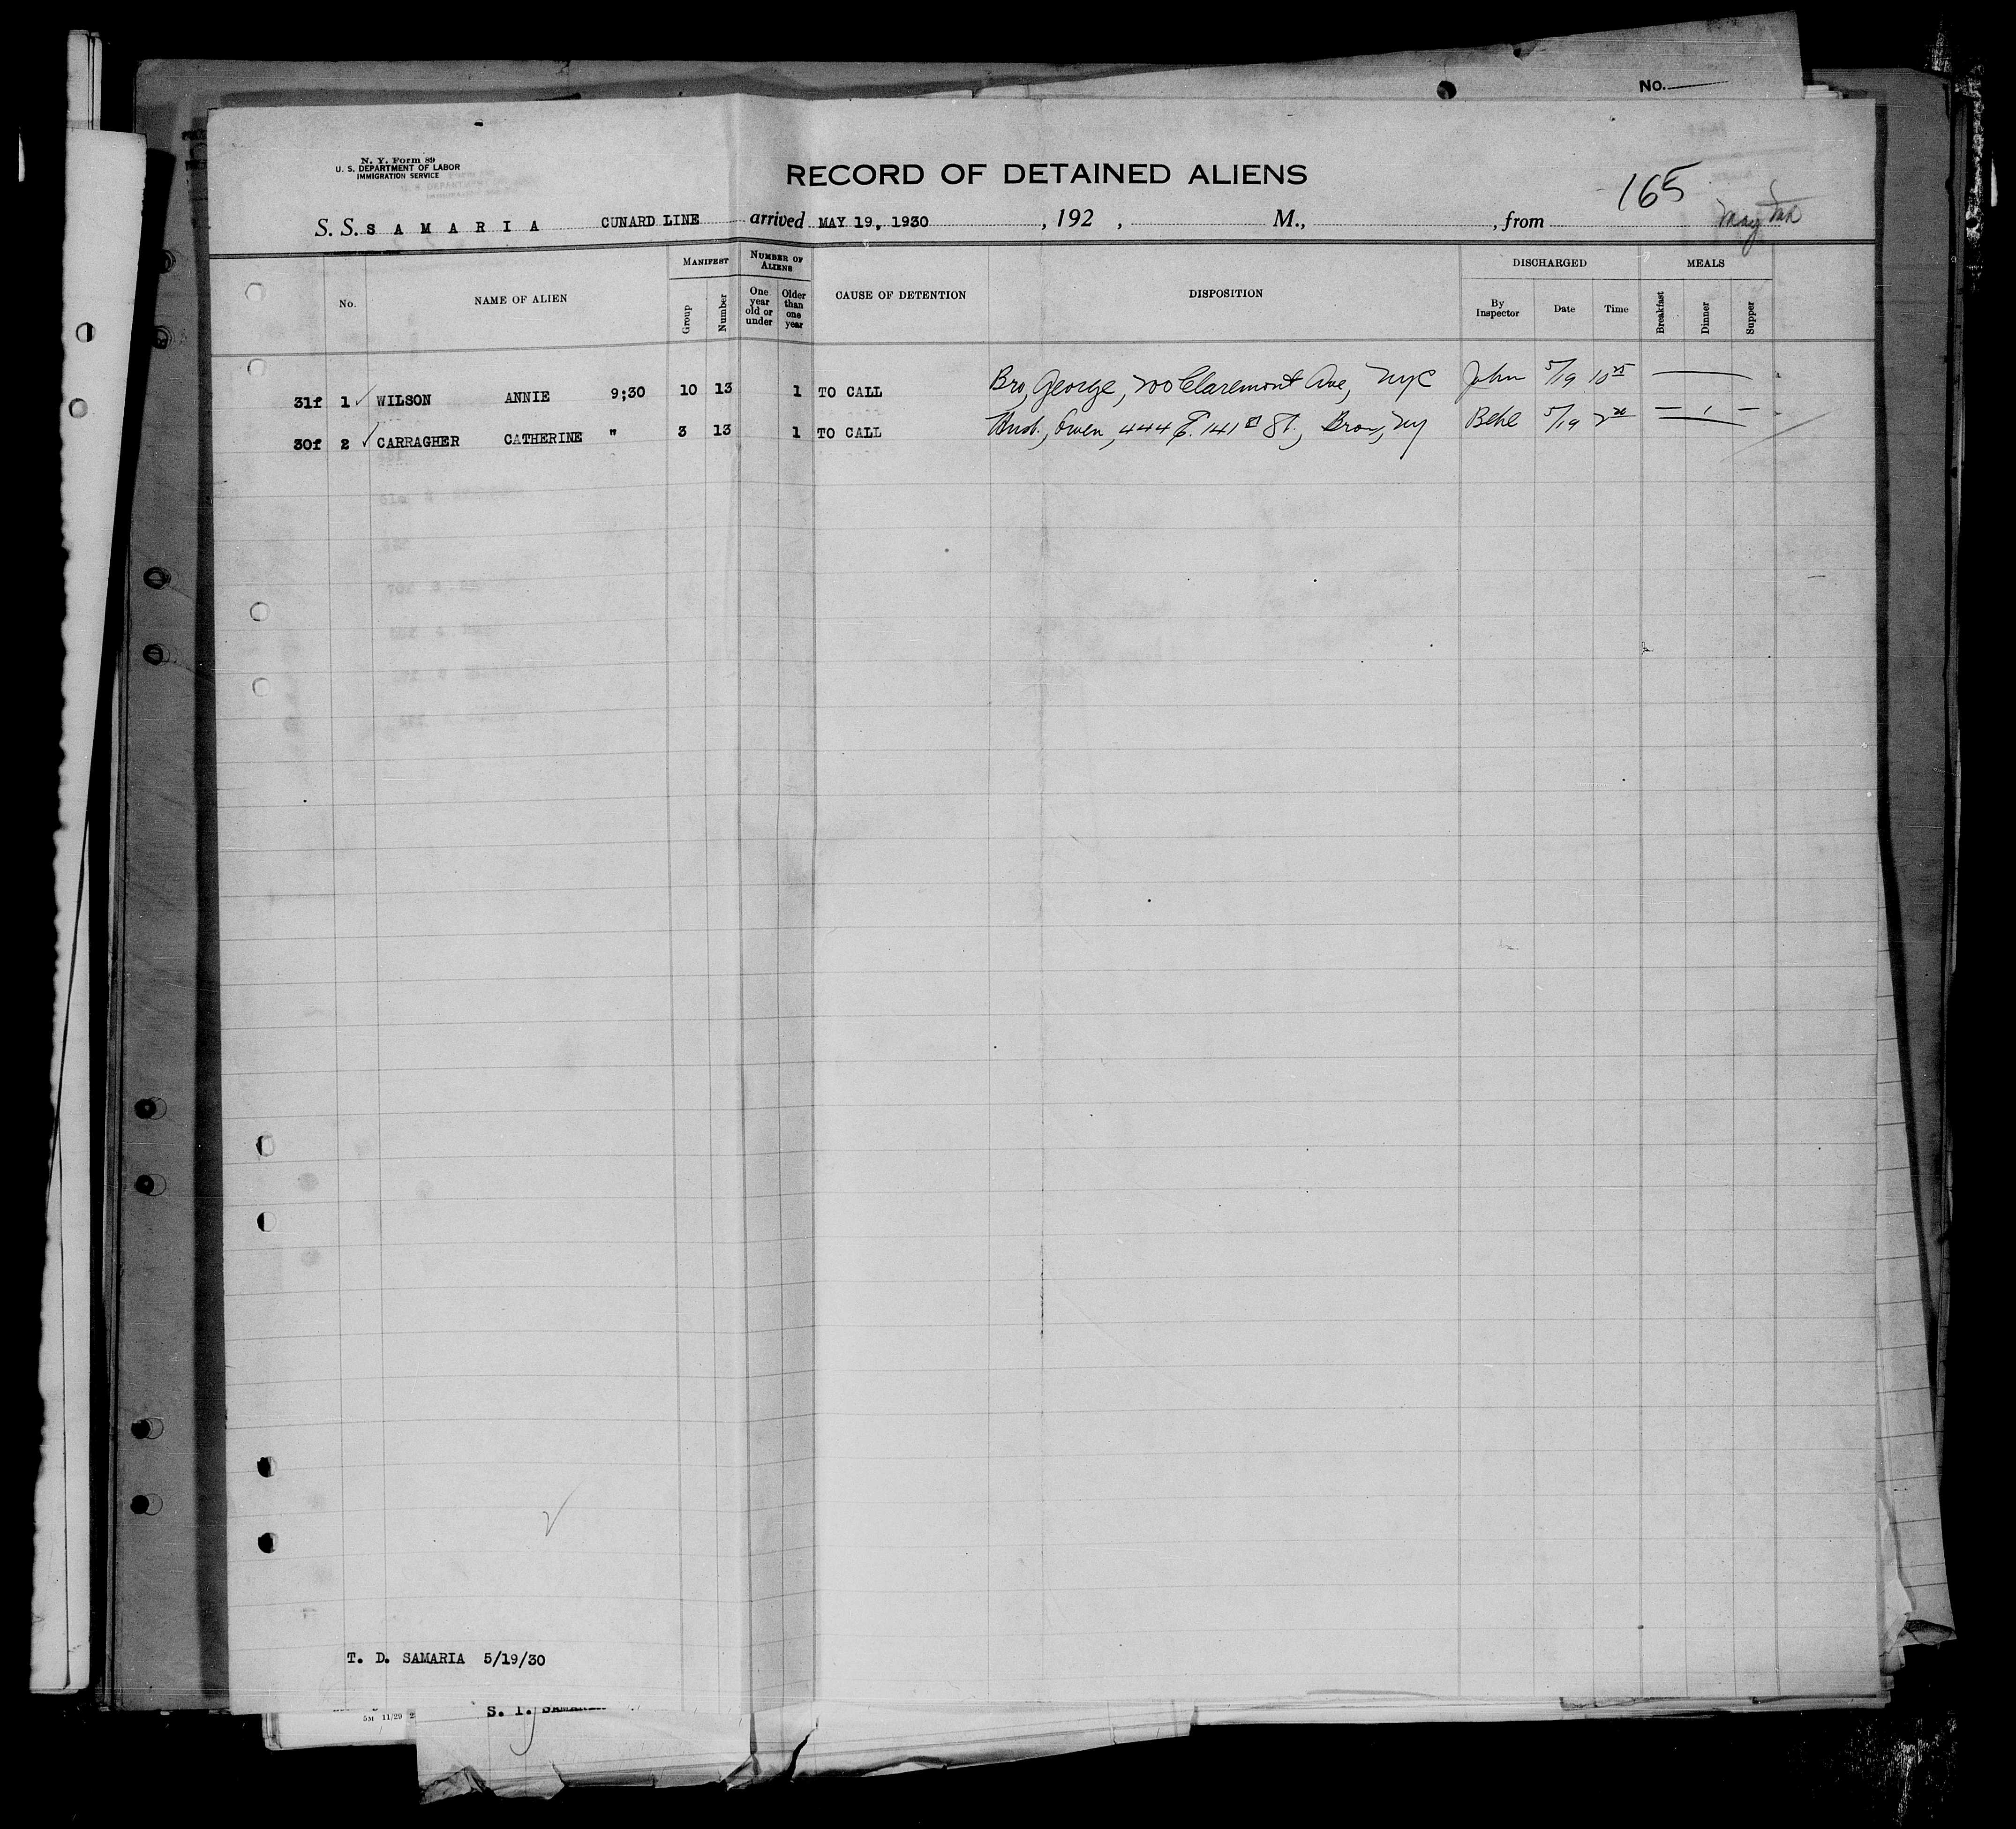 No.
N. Y. Form 89
U. S. DEPARTMENT OF LABOR
IMMIGRATION SERVICE
RECORD OF DETAINED ALIENS
165
S. S. S A M A R I A CUNARD LINE arrived MAY 19, 1930, 192 , M., , from
No. NAME OF ALIEN MANIFEST Group Number NUMBER OF ALIENS One year old or under Older than one year CAUSE OF DETENTION DISPOSITION DISCHARGED By Inspector Date Time MEALS Breakfast Dinner Supper
31f 1 ✓ WILSON ANNIE 9;30 10 13 1 TO CALL Bro, George, 200 Claremont Ave, NYC John 5/19 10 25 —
30f 2 ✓ CARRAGHER CATHERINE " 3 13 1 TO CALL Husb., Owen, 444 E. 141st St., Bronx, NY 5/19 2 20 — 1 —
T. D. SAMARIA 5/19/30
5M 11/29